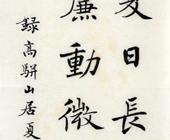 夏日長
廉動微
録高駢山居夏